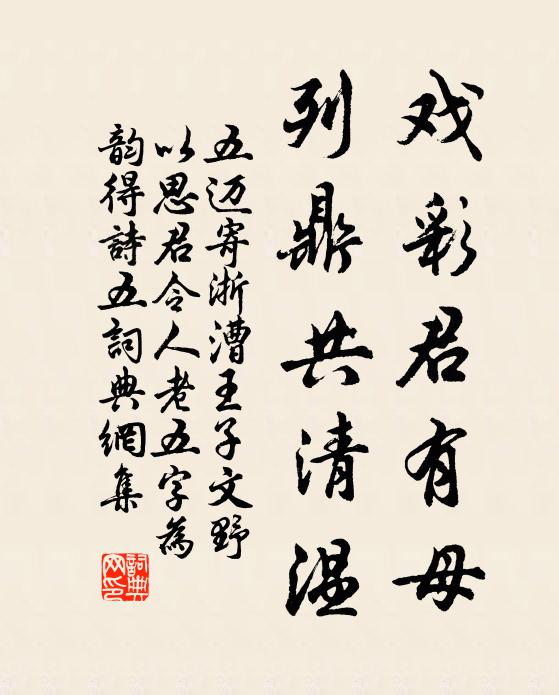 戏彩君有母
列鼎共清温
五迈寄浙漕王子文野
以思君令人老五字為
韵得詩五詞典網集
詞典网印